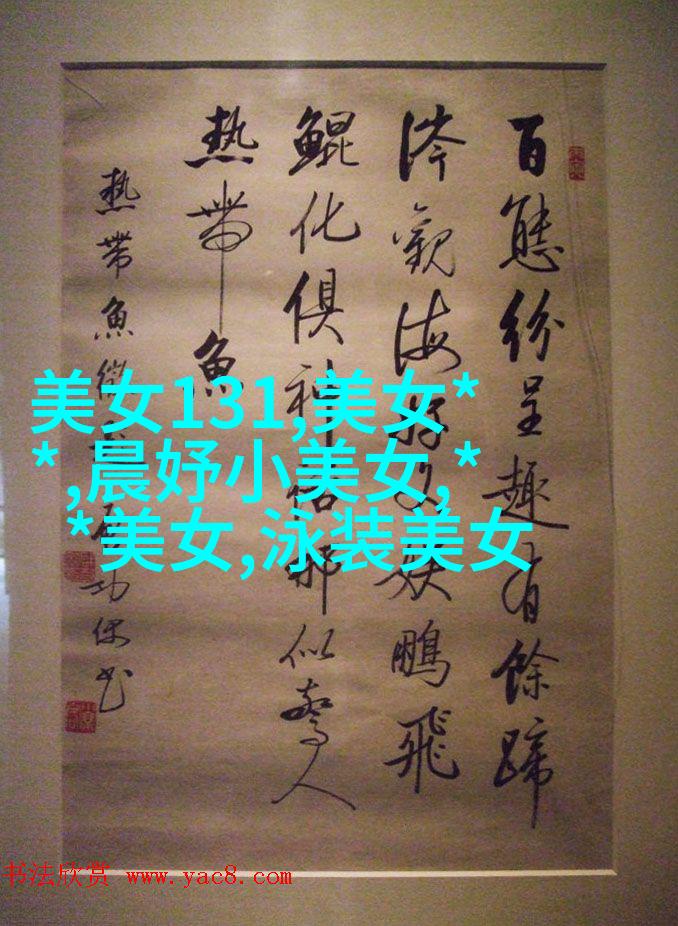 百態紛呈趣有餘蹄
涔觀海好文娛鵬飛
鯤化俱神話那似驚人
熱帶魚
熱帶魚徵 功
美女131,美女*
*,晨妤小美女,*
*美女,泳装美女
书法欣赏 www.yac8.com